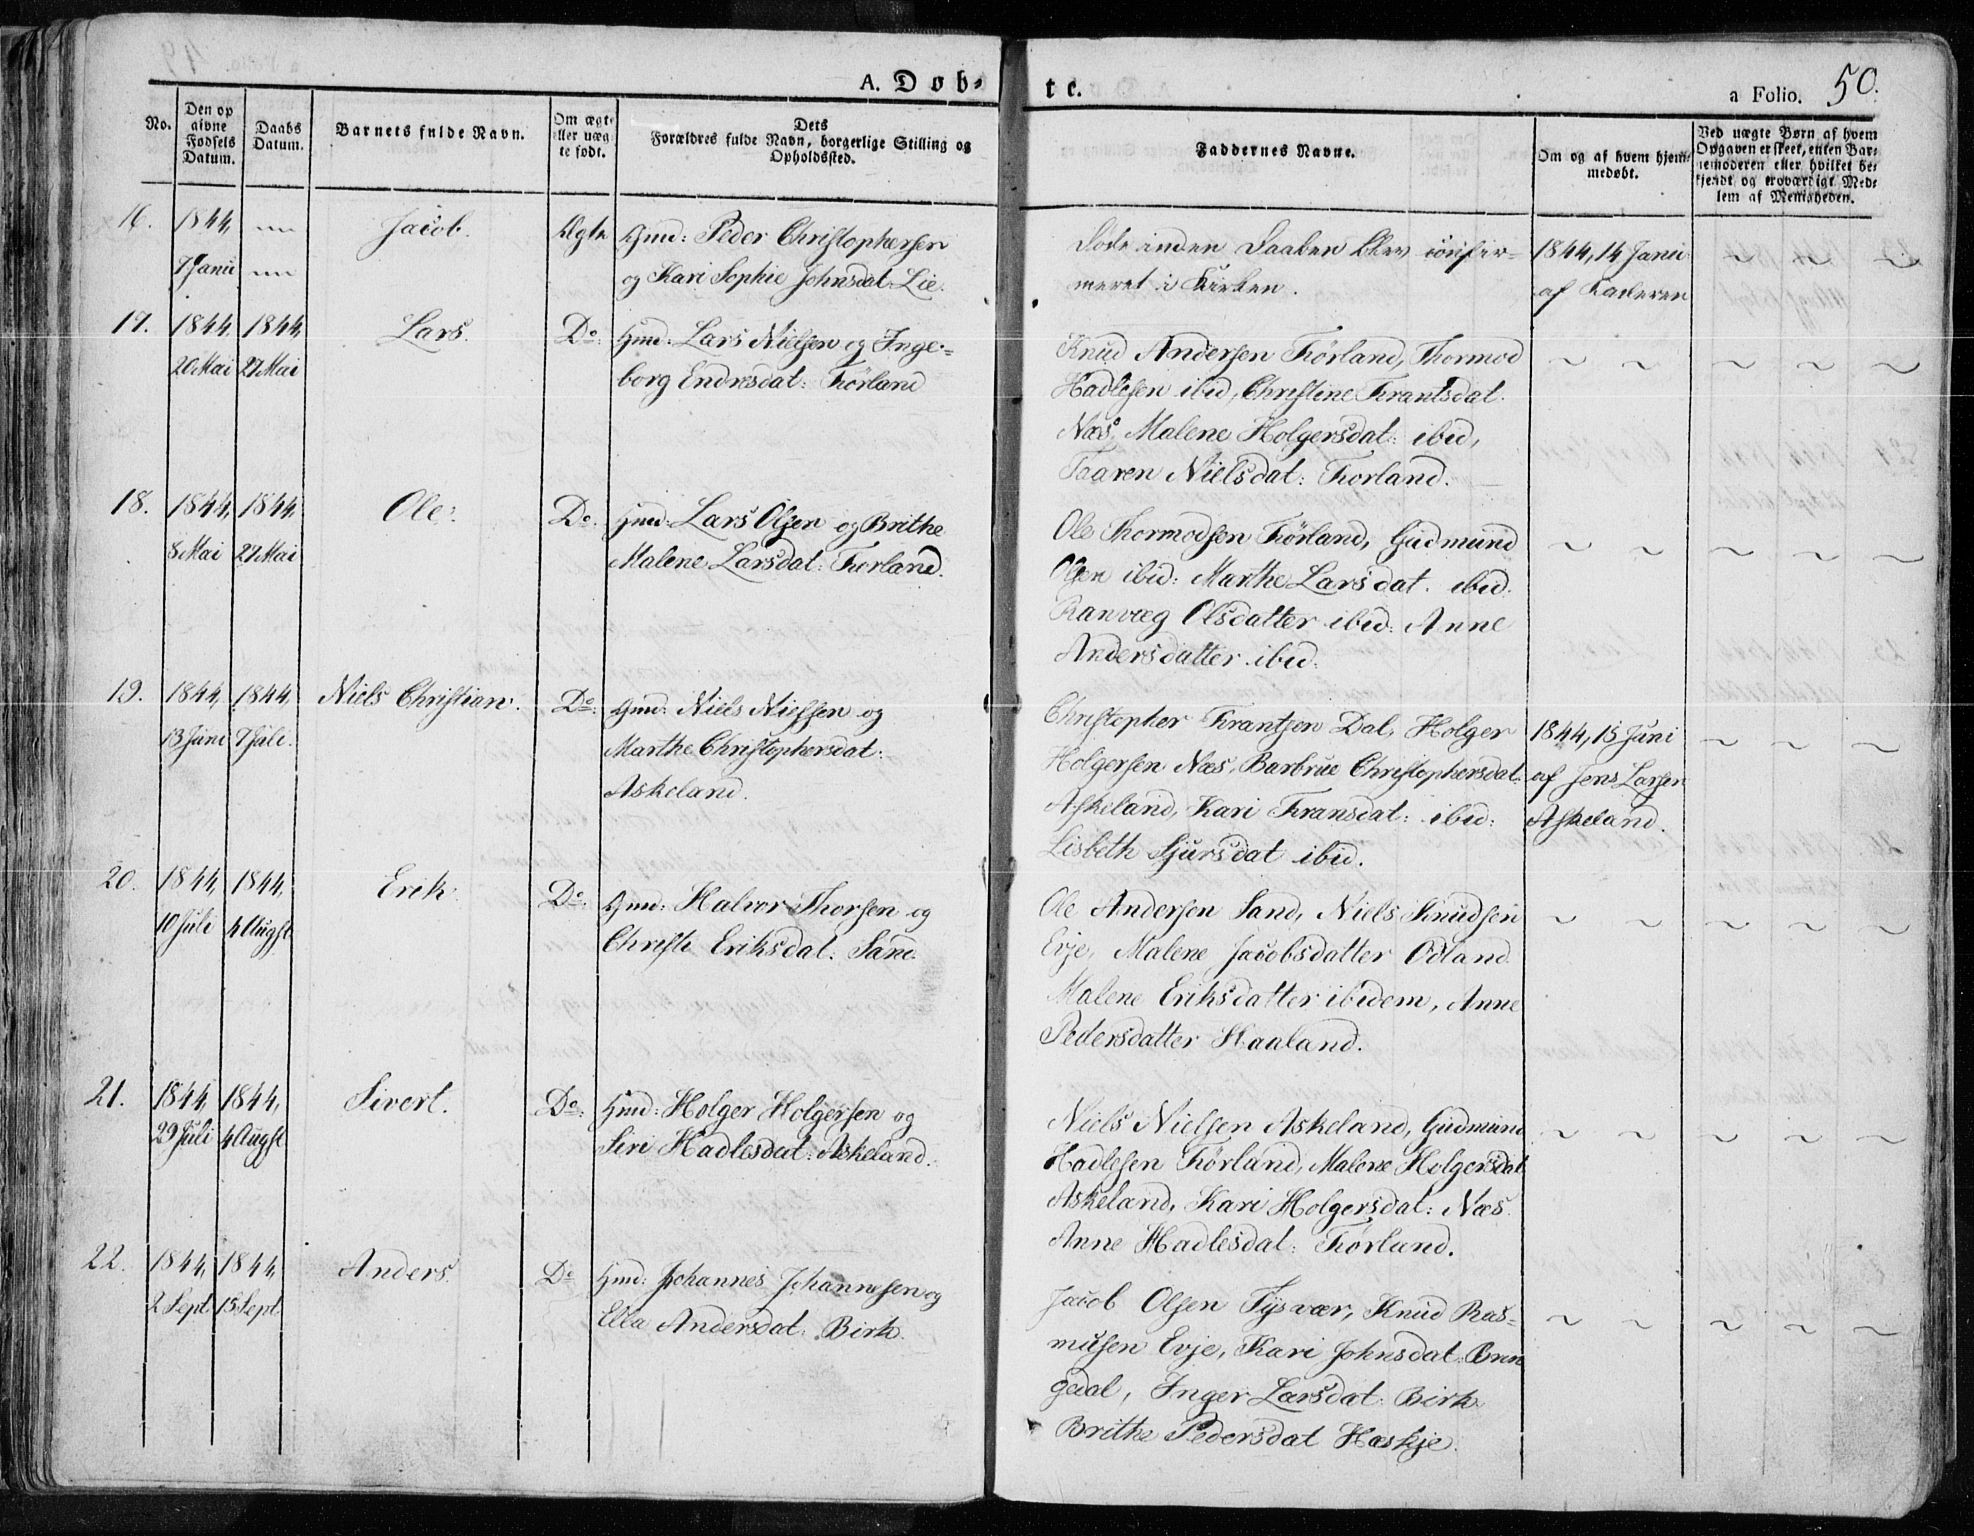 A. Døb-
te.
a Folio. 50.
No.
Den op
givne
Fødsels
Datum.
Daabs
Datum.
Barnets fulde Navn.
Om ægte
eller uæg
te født.
Dets
Forældres fulde Navn, borgerlige Stilling og
Opholdssted.
Faddernes Navne.
Om og af hvem hjem-
medøbt.
Ved uægte Børn af hvem
Opgaven er skeet, enten Bar-
nemoderen eller hvilket be-
kjendt og troværdigt Med-
lem af Menigheden.
16. 1844, Jacob. Ægte Gmd: Peder Christophersen
7 Janu og Kari Sophie Johnsdat: Lie.
Døde inden Daaben blev confir=
meret i Kirken.
1844, 14 Janu
af Faderen
17. 1844, 1844, Lars. Do: Gmd: Lars Nielsen og Inge-
20 Mai 27 Mai borg Endresdat: Førland
Knud Andersen Førland, Thormod
Hadlesen ibid, Christine Frantsdat.
Næs, Malene Holgersdat: ibid,
Taaren Nielsdat: Førland.
18. 1844, 1844, Ole. Do: Gmd: Lars Olsen og Brithe
8 Mai 27 Mai Malene Larsdat: Førland.
Ole Thormodsen Førland, Gudmund
Olsen ibid: Marthe Larsdat. ibid.
Ranvæg Olsdatter ibid: Anne
Andersdatter ibid.
19. 1844, 1844, Niels Christian. Do: Gmd: Niels Nielsen og
13 Juni 7 Juli. Marthe Christophersdat:
Askeland.
Christopher Frantsen Dal, Holger
Holgersen Næs, Barbrue Christophersdat:
Askeland, Kari Fransdat: ibid:
Lisbeth Sjursdat ibid.
1844, 15 Juni
af Jens Larsen
Askeland.
20. 1844, 1844, Erik. Do: Gmd: Halvor Thorsen og
10 Juli 4 Augst Christi Eriksdat: Sand.
Ole Andersen Sand, Niels Knudsen
Evje, Malene Jacobsdatter Odland
Malene Eriksdatter ibidem, Anne
Pedersdatter Haaland.
21. 1844, 1844, Sivert. Do: Gmd: Holger Holgersen og
29 Juli 4 Augst Siri Hadlesdat: Askeland.
Niels Nielsen Askeland, Gudmund
Hadlesen Førland, Malene Holgersdat
Askeland, Kari Holgersdat: Næs.
Anne Hadlesdat: Førland.
22. 1844, 1844, Anders. Do Gmd: Johannes Johannesen og
2 Sept 15 Sept Ella Andersdat: Birk.
Jacob Olsen Tysvær, Knud Ras=
musen Evje, Kari Johnsdat:
gedal, Inger Larsdat: Birk
Brithe Pedersdat Høskje.